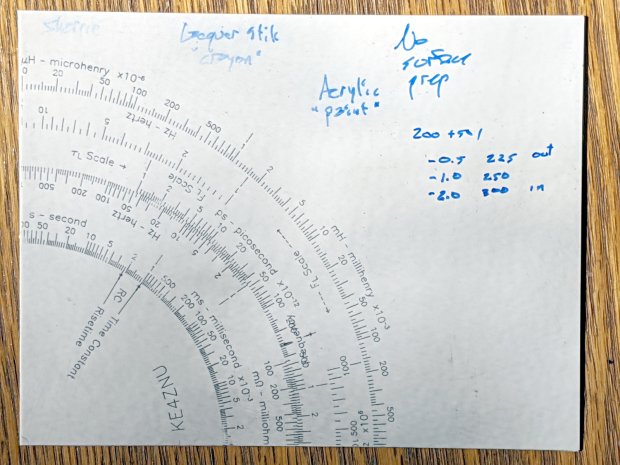 Lacquer Stik
"crayon"
No
surface
prep
Acrylic
"paint"
-0.5 225 out
-1.0 250
-2.0 300 in
μH - microhenry x10-6
20 50 100 200 500 2 5 10 20 50 100 200 500
mH - millihenry x10-3
Hz - hertz
10 5 2
FL Scale
FL Scale
τL Scale →
Hz hertz
500 200 100 50 20 10 5 2
ps picosecond x10-12
s - second
50 20 10 5 2
500 200 100 50 20 10 5 2
ms millisecond x10-3
mΩ - milliohm
100 200 500
1000
RC Time Constant
Risetime
KE4ZNU